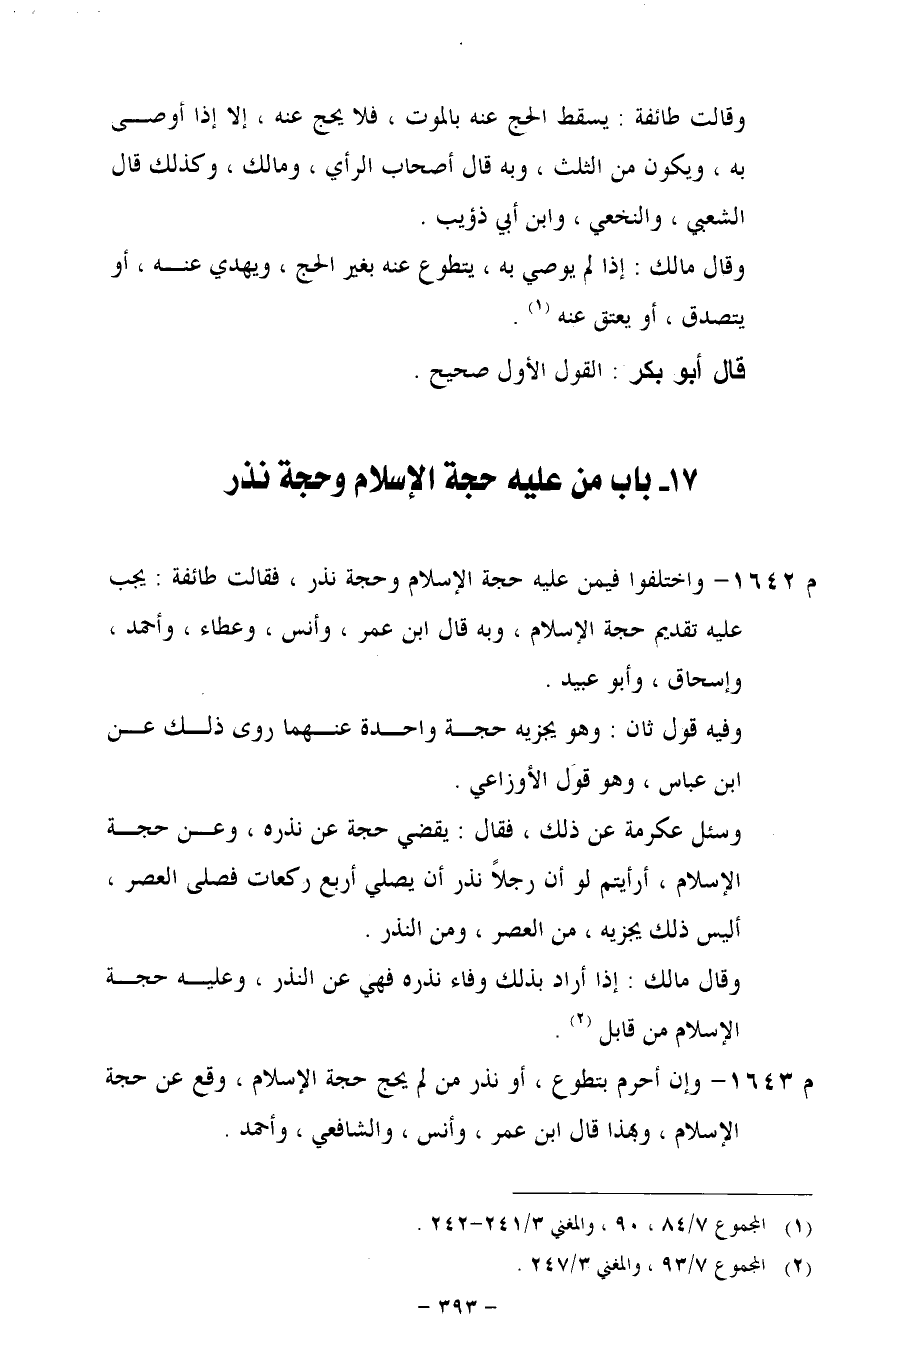 وقالت طائفة : يسقط الحج عنه بالموت ، فلا يحج عنه ، إلا إذا أوصى
به ، ويكون من الثلث ، وبه قال أصحاب الرأي ، ومالك ، وكذلك قال
الشعبي ، والنخعي ، وابن أبي ذؤيب .
وقال مالك : إذا لم يوصي به ، يتطوع عنه بغير الحج ، ويهدي عنه ، أو
يتصدق ، أو يعتق عنه (١) .
قال أبو بكر : القول الأول صحيح .
١٧ـ باب من عليه حجة الإسلام وحجة نذر
م ١٦٤٢– واختلفوا فيمن عليه حجة الإسلام وحجة نذر ، فقالت طائفة : يجب
عليه تقديم حجة الإسلام ، وبه قال ابن عمر ، وأنس ، وعطاء ، وأحمد ،
وإسحاق ، وأبو عبيد .
وفيه قول ثان : وهو يجزيه حجة واحدة عنهما روى ذلك عن
ابن عباس ، وهو قول الأوزاعي .
وسئل عكرمة عن ذلك ، فقال : يقضي حجة عن نذره ، وعن حجة
الإسلام ، أرأيتم لو أن رجلاً نذر أن يصلي أربع ركعات فصلى العصر ،
أليس ذلك يجزيه ، من العصر ، ومن النذر .
وقال مالك : إذا أراد بذلك وفاء نذره فهي عن النذر ، وعليه حجة
الإسلام من قابل (٢) .
م ١٦٤٣– وإن أحرم بتطوع ، أو نذر من لم يحج حجة الإسلام ، وقع عن حجة
الإسلام ، وبهذا قال ابن عمر ، وأنس ، والشافعي ، وأحمد .
(١) المجموع ٨٤/٧ ، ٩٠ ، والمغني ٢٤١/٣–٢٤٢ .
(٢) المجموع ٩٣/٧ ، والمغني ٢٤٧/٣ .
– ٣٩٣ –